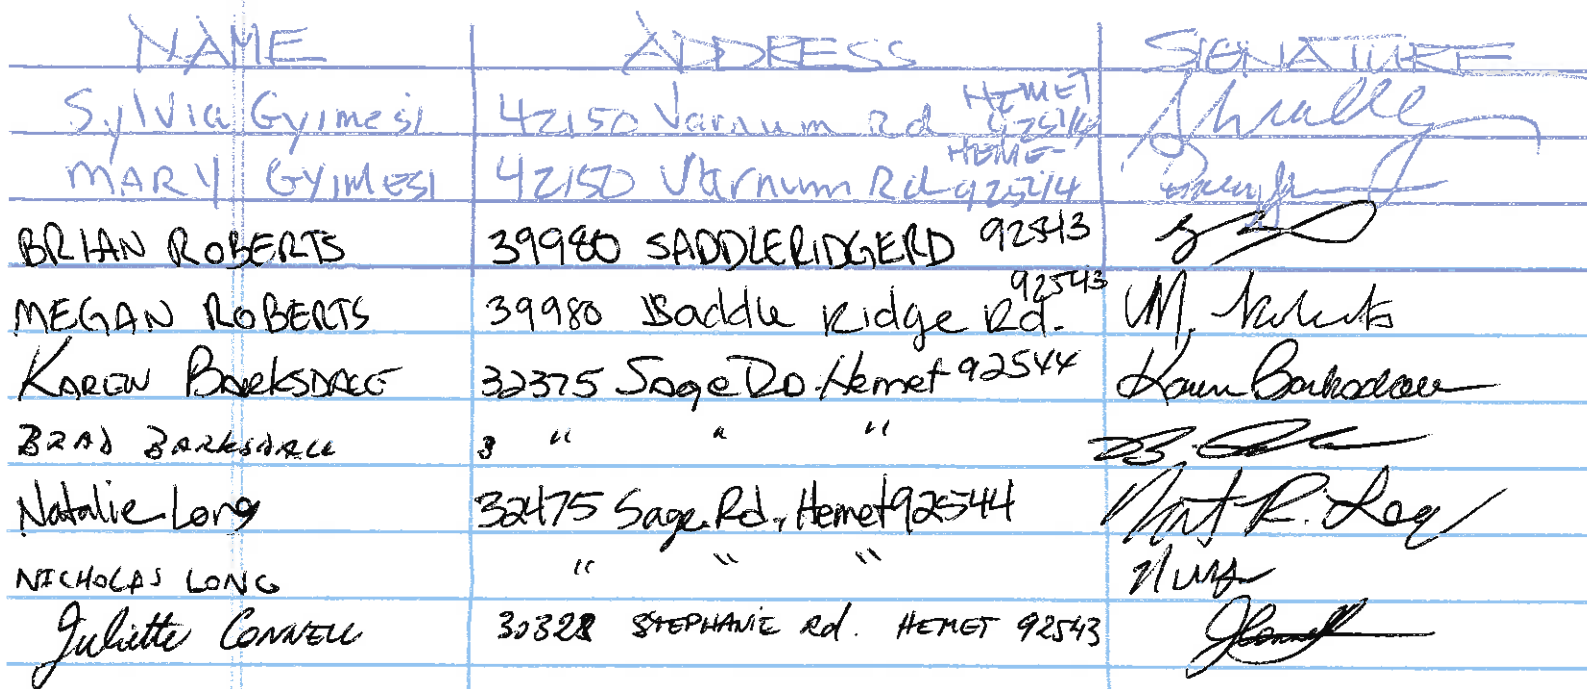 NAME ADDRESS SIGNATURE
Sylvia Gyimesi 42150 Varnum Rd HEMET 92544
MARY GYIMESI 42150 Varnum Rd HEMET 92544
BRIAN ROBERTS 39980 SADDLERIDGERD 92543
MEGAN ROBERTS 39980 Saddle Ridge Rd. 92543 M. Roberts
KAREN BARKSDALE 32375 Sage RD. Hemet 92544 Karen Barksdale
BRAD BARKSDALE " " " B.
Natalie Long 32475 Sage Rd., Hemet 92544 Nat R. Long
NICHOLAS LONG " " "
Juliette CONNELL 30328 STEPHANIE Rd. HEMET 92543 JConnell